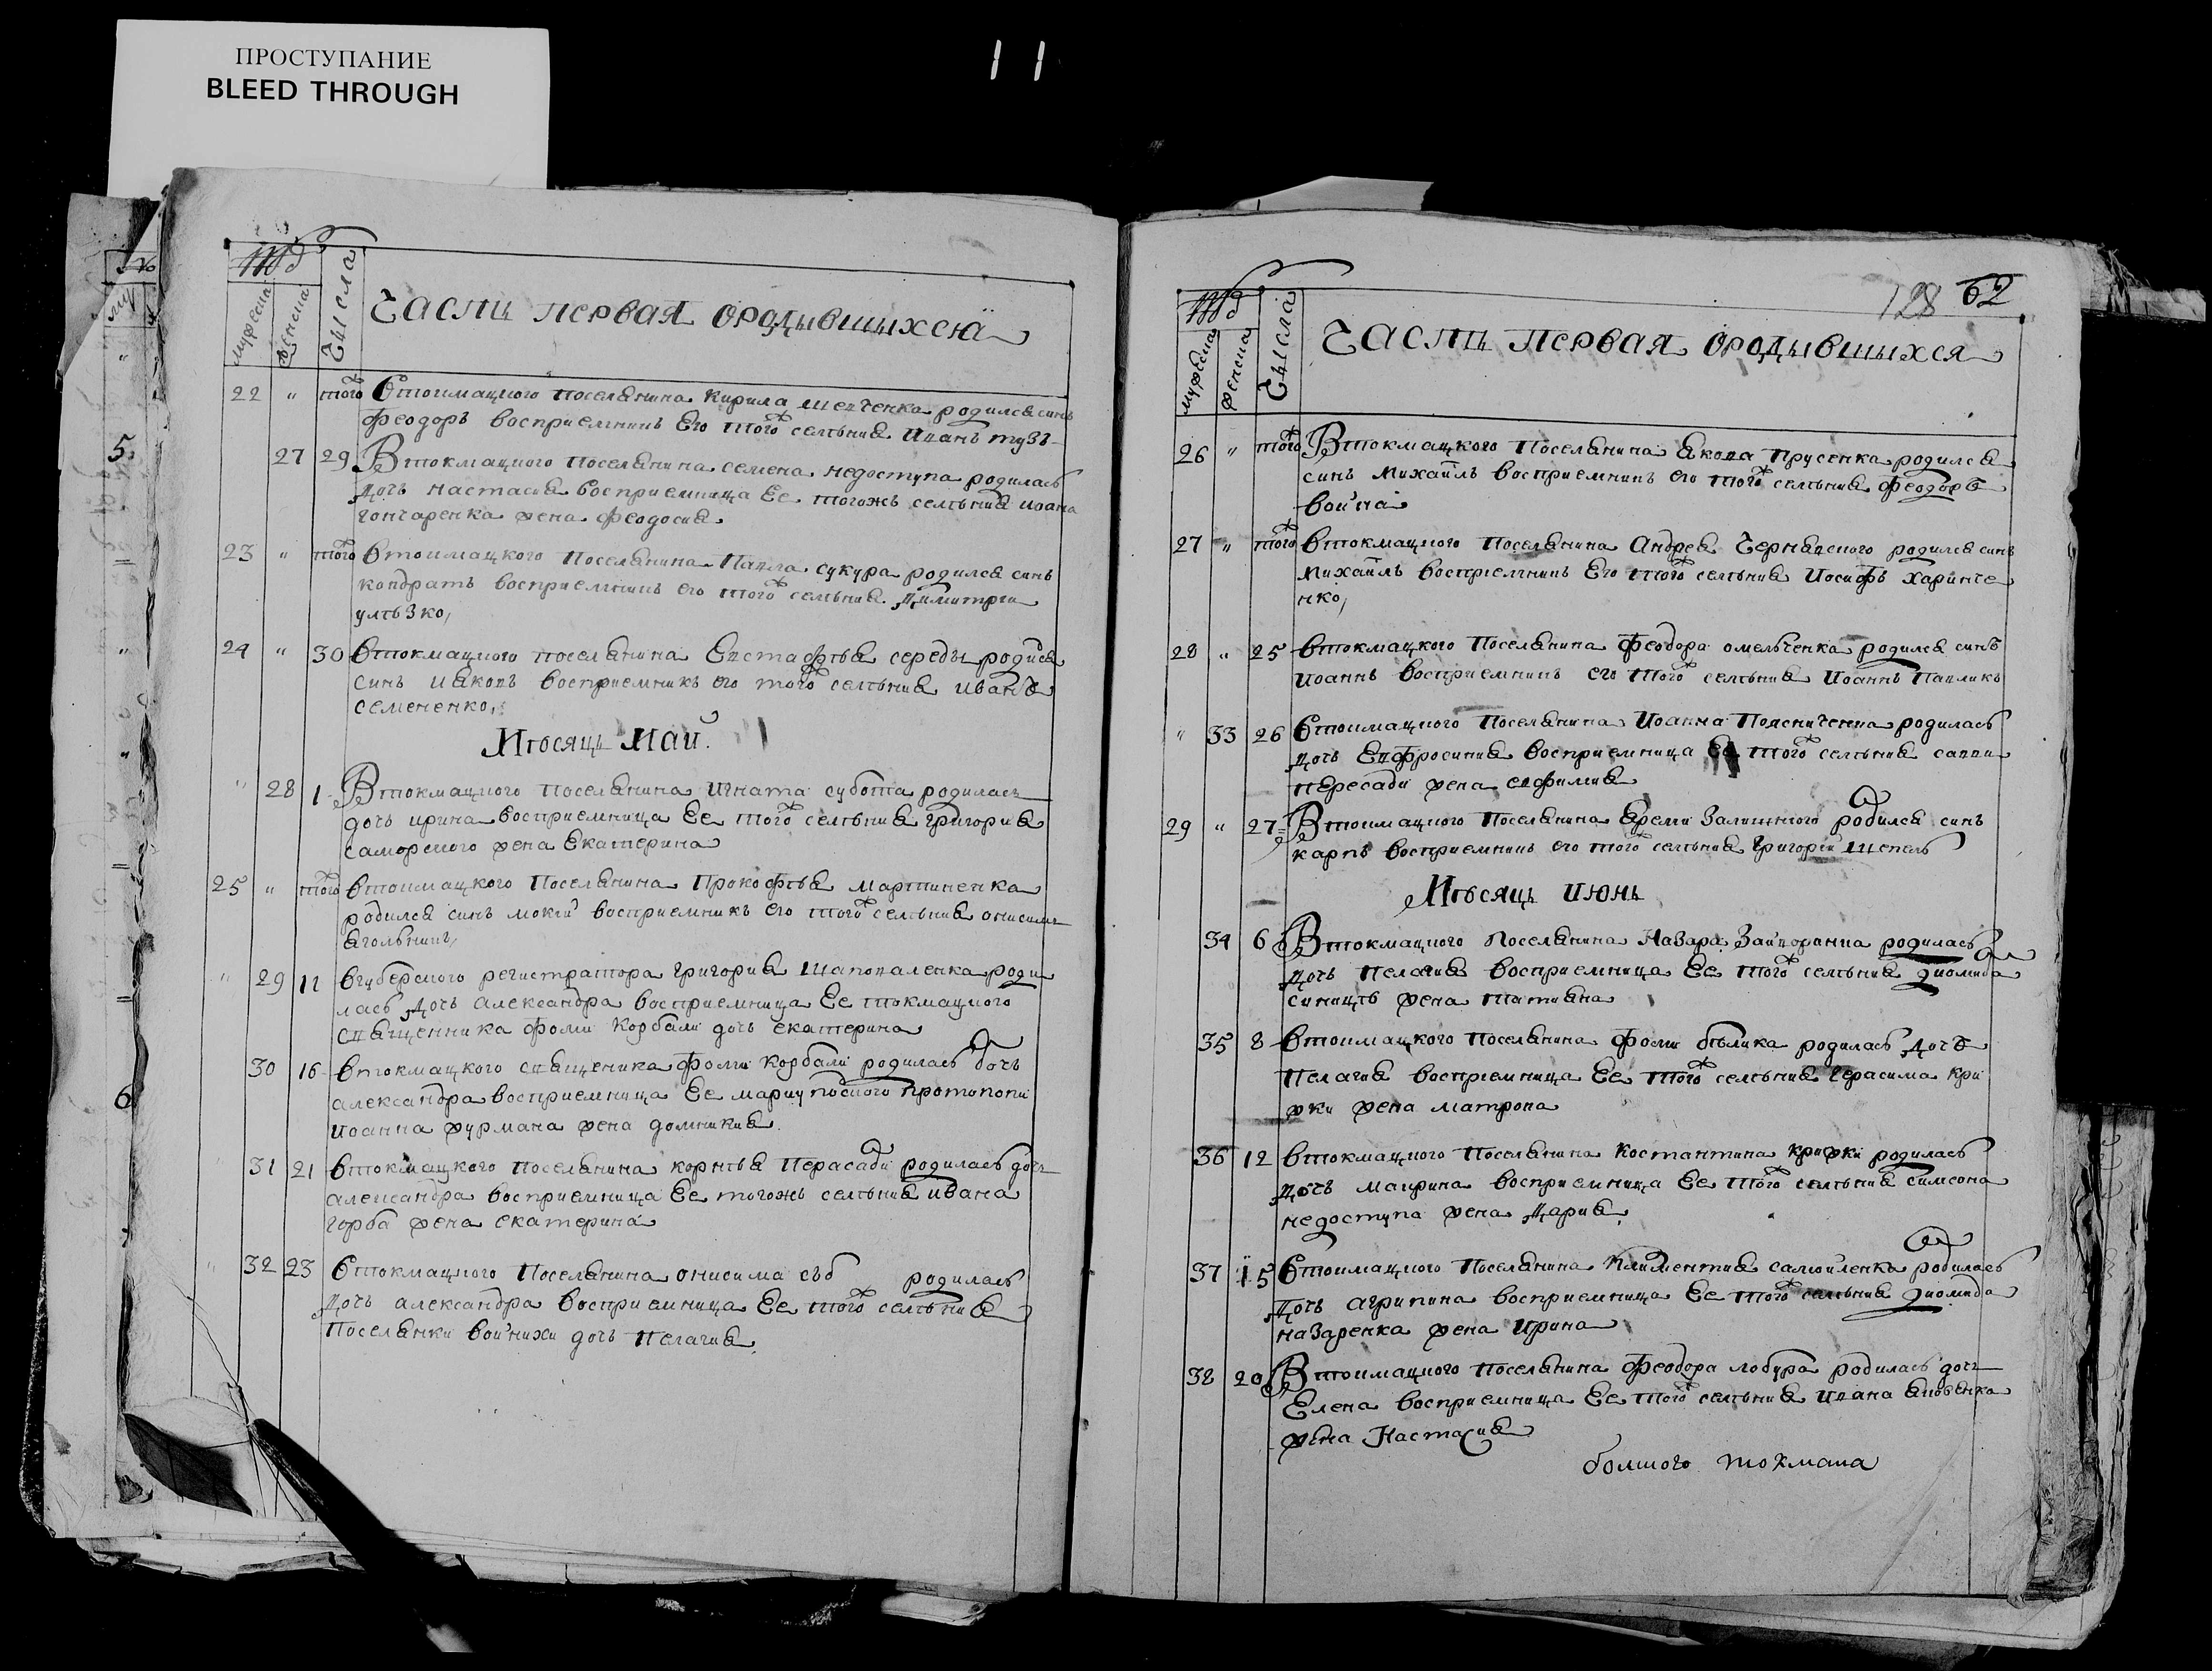 ПРОСТУПАНИЕ
BLEED THROUGH
11
мужеска женска Числа
Часть первая ородывшихся
22 " того Втокмацкого поселянина Кирила Шевченка родился синъ
феодоръ восприемникъ Его того селения Иванъ
27 29 Втокмацкого поселянина семена недоступа родилась
дочь настасия восприемница Ее тогожъ селѣния иоана
гончаренка жена феодосия
23 " того втокмацкого Поселянина Павла сукура родился синъ
кондратъ восприемникъ его того селѣния Димитрий
24 " 30 Втокмацкого поселянина Евстафѣя середы родился
синъ иаковъ восприемникъ его того селѣния иванъ
семененко,
Мѣсяцъ Май.
" 28 1 Втокмацкого поселянина Игната субота родилась
дочь ирина восприемница Ее того селѣния григория
саморского жена Екатерина
25 " того втокмацкого Поселянина Прокофѣя мартиненка
родился синъ мокий восприемникъ его того селѣния онисимъ
" 29 11 вгуберского регистратора григория Шаповаленка роди
лась дочь александра восприемница Ее токмацкого
священника фоми Корбали дочь екатерина
30 16 втокмацкого священика фоми Корбали родилась дочь
александра восприемница Ее мариупоского протопопи
иоанна фурмана жена домникия
31 21 втокмацкого поселянина корнѣя Перасади родилась дочь
александра восприемница Ее тогожъ селѣния ивана
горба жена екатерина
" 32 23 Втокмацкого Поселянина онисима родилась
дочь александра восприемница Ее того селѣния
Поселянки войнихи дочь Пелагия
128 62
мужеска женска Числа
Часть первая ородывшихся
26 " того Втокмацкого Поселянина Якова Прусенка родился
синъ михаилъ восприемникъ его того селѣния феодоръ
война
27 " того втокмацкого Поселянина Андрея Чернявского родился синъ
михаилъ восприемникъ Его того селѣния Иосифъ харинче
нко,
28 " 25 втокмацкого Поселянина феодора омельченка родился синъ
иоаннъ восприемникъ его того селѣния Иоаннъ Павликъ
" 33 26 Втокмацкого поселянина Иоанна родилась
дочь Евфросиния восприемница Ее того селѣния саввы
пересади жена евфимия
29 " 27 Втокмацкого Поселянина Ереми Залишного родился синъ
карпъ восприемникъ его того селѣния Григорий Шепель
Мѣсяцъ Июнь
34 6 Втокмацкого Поселянина Назара Запоранца родилась
дочь пелагия восприемница Ее того селѣния диомида
синицѣ жена татияна
35 8 Втокмацкого Поселянина фоми бѣлика родилась дочь
пелагия восприемница Ее того селѣния Герасима кри
жки жена матрона
36 12 втокмацкого поселянина Костантина крижки родилась
дочь маврина восприемница Ее того селѣния симеона
недоступа жена Дария
37 15 Втокмацкого Поселянина Климентия самойленка родилась
дочь агрипина восприемница Ее того селѣния диомида
назаренка жена ирина
38 20 Втокмацкого поселянина Феодора лобура родилась дочь
Елена восприемница Ее того селѣния ивана яковенка
жена Настасия
болшого токмака